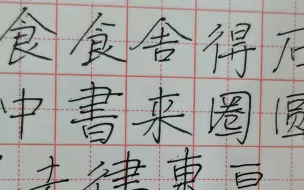 食食舍得石
中書来圈圓
律東